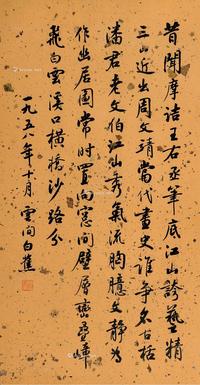 昔聞摩詰王右丞筆底江山誇藝精
三山近出周文靖當代畫史誰爭名古括
潘君老文伯江山秀氣流胸臆文靜為
作幽居圖常時置向窓間壁層巒疊嶂
飛白雲溪口橫橋沙路分
一九五一年十月雲間白蕉